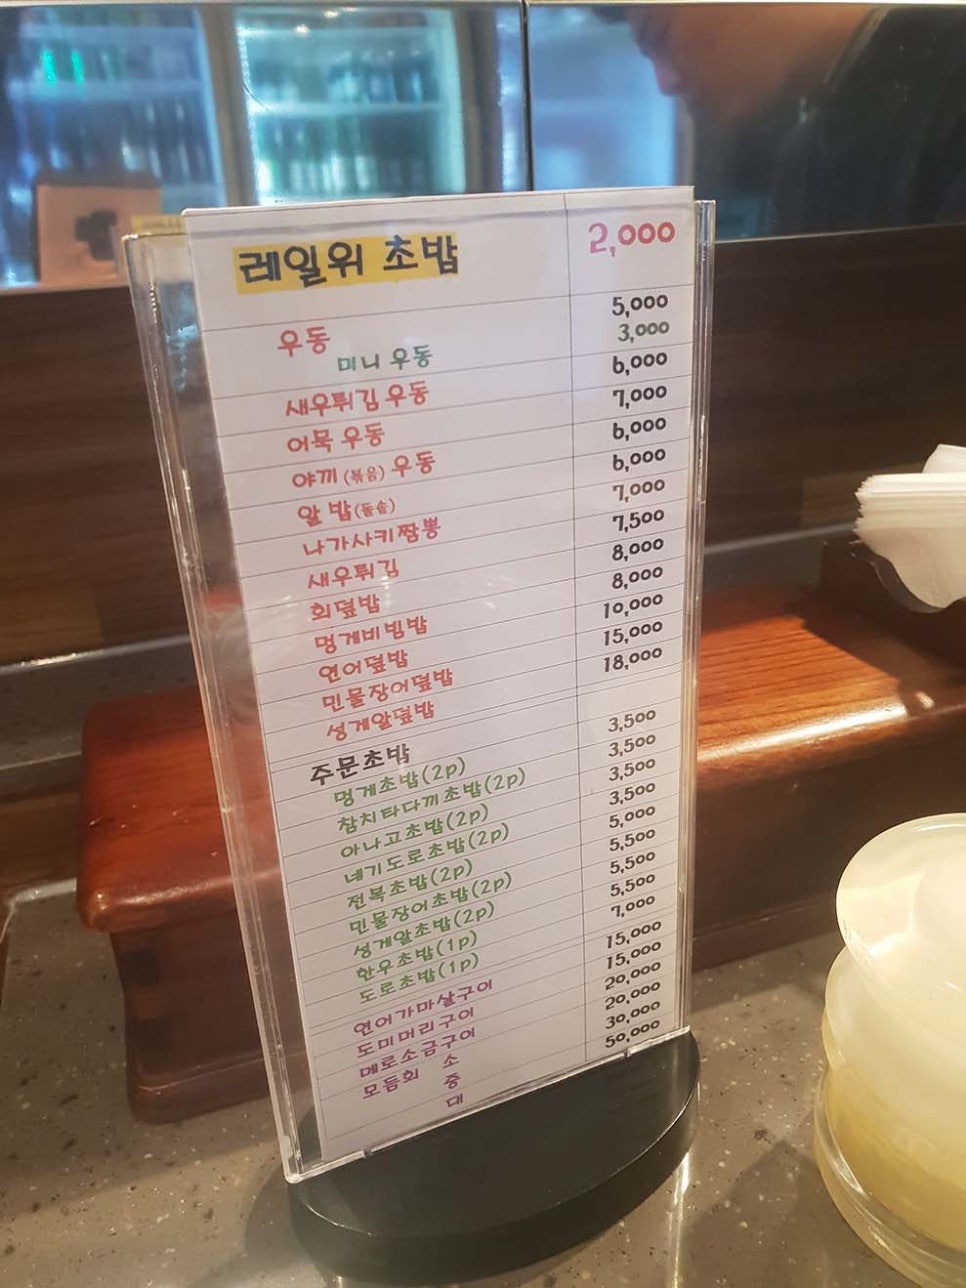 레일위 초밥 2,000
우동 5,000
미니 우동 3,000
새우튀김 우동 6,000
어묵 우동 7,000
야끼(볶음)우동 6,000
알밥(돌솥) 6,000
나가사키짬뽕 7,000
새우튀김 7,500
회덮밥 8,000
멍게비빔밥 8,000
연어덮밥 10,000
민물장어덮밥 15,000
성게알덮밥 18,000
주문초밥
멍게초밥(2p) 3,500
참치타다끼초밥(2p) 3,500
아나고초밥(2p) 3,500
네기도로초밥(2p) 3,500
전복초밥(2p) 5,000
민물장어초밥(2p) 5,500
성게알초밥(2p) 5,500
한우초밥(1p) 5,500
도로초밥(1p) 7,000
연어가마살구이 15,000
도미머리구이 15,000
메로소금구이 20,000
모듬회 소 20,000
중 30,000
대 50,000